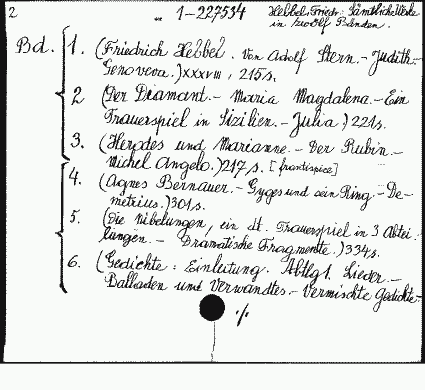 2 " 1-227534 Hebbel, Friedr: Sämtliche Werke
in zwölf Bänden.
Bd. 1. (Friedrich Hebbel. Von Adolf Stern.- Judith.-
Genoveva.) XXXVIII, 215s.
2 (Der Diamant.- Maria Magdalena.- Ein
Trauerspiel in Sizilien.- Julia) 221s.
3. (Herodes und Mariamne.- Der Rubin.-
Michel Angelo.) 217s. [frontispice]
4. (Agnes Bernauer.- Gyges und sein Ring.- De-
metrius.) 301s.
5. (Die Nibelungen, ein dt. Trauerspiel in 3 Abtei-
lungen.- Dramatische Fragmente.) 334s.
6. (Gedichte: Einleitung. Abtlg 1. Lieder.-
Balladen und Verwandtes.- Vermischte Gedichte.-
./.